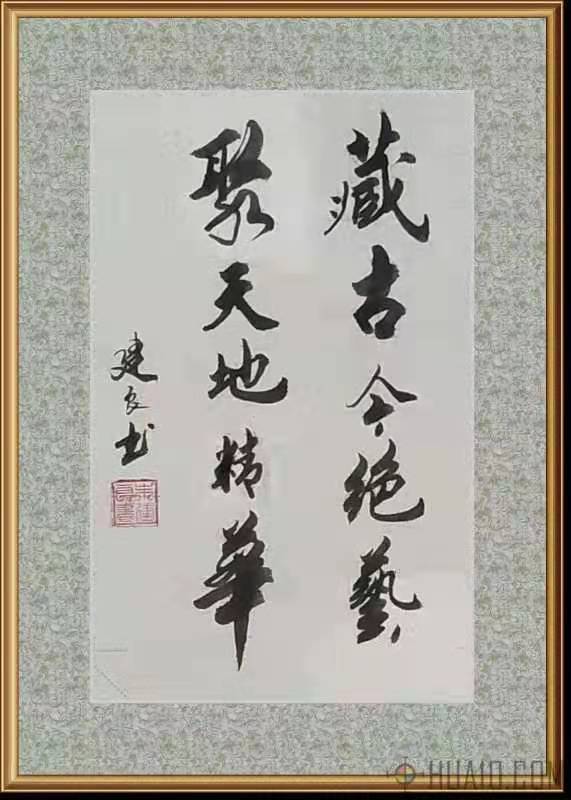 藏古今绝藝
聚天地精華
建良书
HUA10.COM